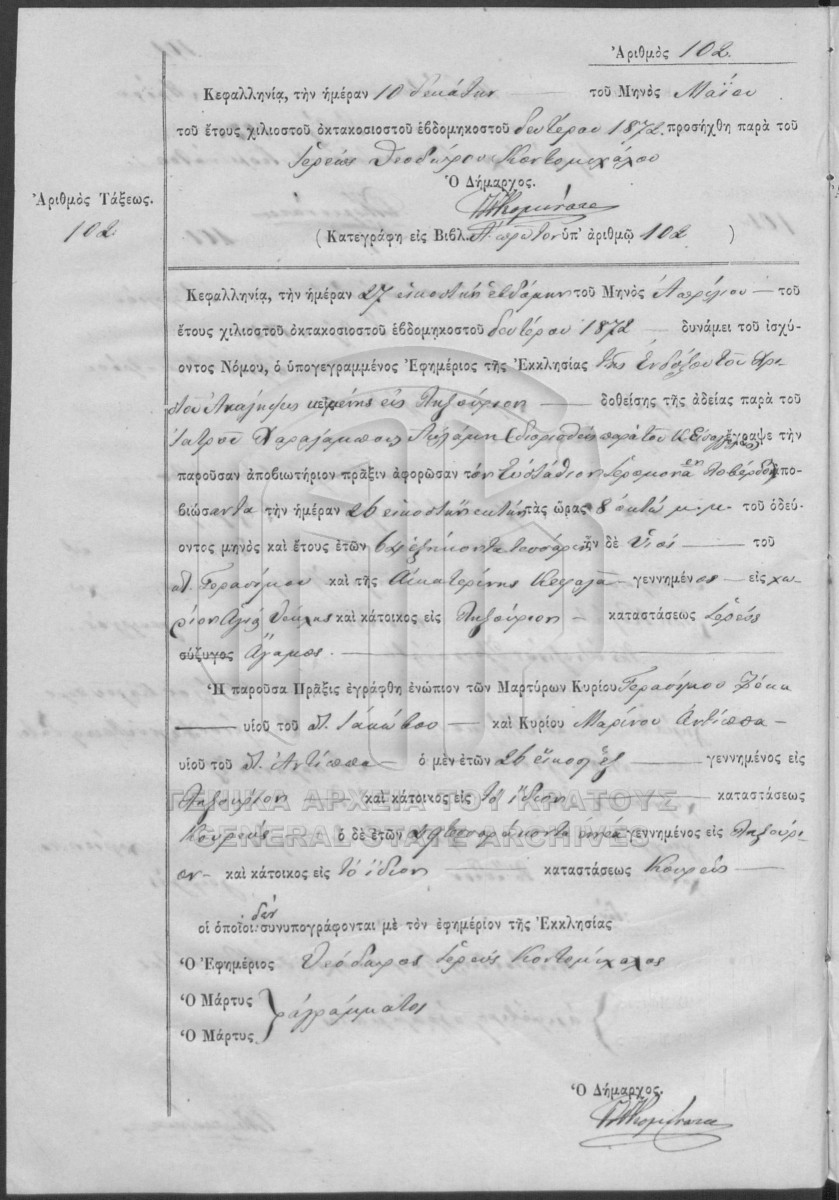 Ἀριθμὸς 102.
Κεφαλληνίᾳ, τὴν ἡμέραν 10 δεκάτην τοῦ Μηνὸς Μαΐου
τοῦ ἔτους χιλιοστοῦ ὀκτακοσιοστοῦ ἑβδομηκοστοῦ δευτέρου 1872. προσήχθη παρὰ τοῦ
Ἱερέως Θεοδώρου Κοντομιχάλου
Ὁ Δήμαρχος.
Ἀριθμὸς Τάξεως.
102.
(Κατεγράφη εἰς Βιβλ. Α πρῶτον ὑπ' ἀριθμῷ 102)
Κεφαλληνίᾳ, τὴν ἡμέραν 27 εἰκοστὴν ἑβδόμην τοῦ Μηνὸς Ἀπριλίου — τοῦ
ἔτους χιλιοστοῦ ὀκτακοσιοστοῦ ἑβδομηκοστοῦ δευτέρου 1872 — δυνάμει τοῦ ἰσχύ-
οντος Νόμου, ὁ ὑπογεγραμμένος Ἐφημέριος τῆς Ἐκκλησίας τῆς Ἐνδόξου τοῦ Χρι
στοῦ Ἀναλήψεως κειμένης εἰς Ληξούριον — δοθείσης τῆς ἀδείας παρὰ τοῦ
Ἰατροῦ Χαραλάμπους διορισθεὶς παρὰ τοῦ ἔγραψε τὴν
παροῦσαν ἀποβιωτήριον πρᾶξιν ἀφορῶσαν τὸν Εὐστάθιον Ἱερομονα ἀπο-
βιώσαντα τὴν ἡμέραν 26 εἰκοστὴν ἕκτην τὰς ὥρας 8 ὀκτώ μ.μ. τοῦ ὁδεύ-
οντος μηνὸς καὶ ἔτους ἐτῶν 64 ἑξήκοντα τεσσάρων ἦν δὲ υἱός — τοῦ
Γερασίμου καὶ τῆς Αἰκατερίνης Κεφαλᾶ — γεννημένος — εἰς χω-
ρίον Ἁγία Θέκλης καὶ κάτοικος εἰς Ληξούριον — καταστάσεως Ἱερεύς
σύζυγος Ἄγαμος. —
Ἡ παροῦσα Πρᾶξις ἐγράφθη ἐνώπιον τῶν Μαρτύρων Κυρίου Γερασίμου Φωκᾶ
— υἱοῦ τοῦ Ἰακώβου — καὶ Κυρίου Μαρίνου Ἀντίππα —
υἱοῦ τοῦ Ἀντίππα ὁ μὲν ἐτῶν 26 εἴκοσι ἕξ — γεννημένος εἰς
Ληξούριον — καὶ κάτοικος εἰς τὸ ἴδιον — καταστάσεως
Κουρεύς — ὁ δὲ ἐτῶν 49 τεσσαράκοντα ἐννέα γεννημένος εἰς Ληξούρι-
ον — καὶ κάτοικος εἰς τὸ ἴδιον — καταστάσεως Κουρεύς —
οἱ ὁποῖοι δὲν συνυπογράφονται μὲ τὸν ἐφημέριον τῆς Ἐκκλησίας
Ὁ Ἐφημέριος Θεόδωρος Ἱερεύς Κοντομίχαλος
Ὁ Μάρτυς
ἀγράμματος
Ὁ Μάρτυς.
Ὁ Δήμαρχος.
ΓΕΝΙΚΑ ΑΡΧΕΙΑ ΤΟΥ ΚΡΑΤΟΥΣ
GENERAL STATE ARCHIVES